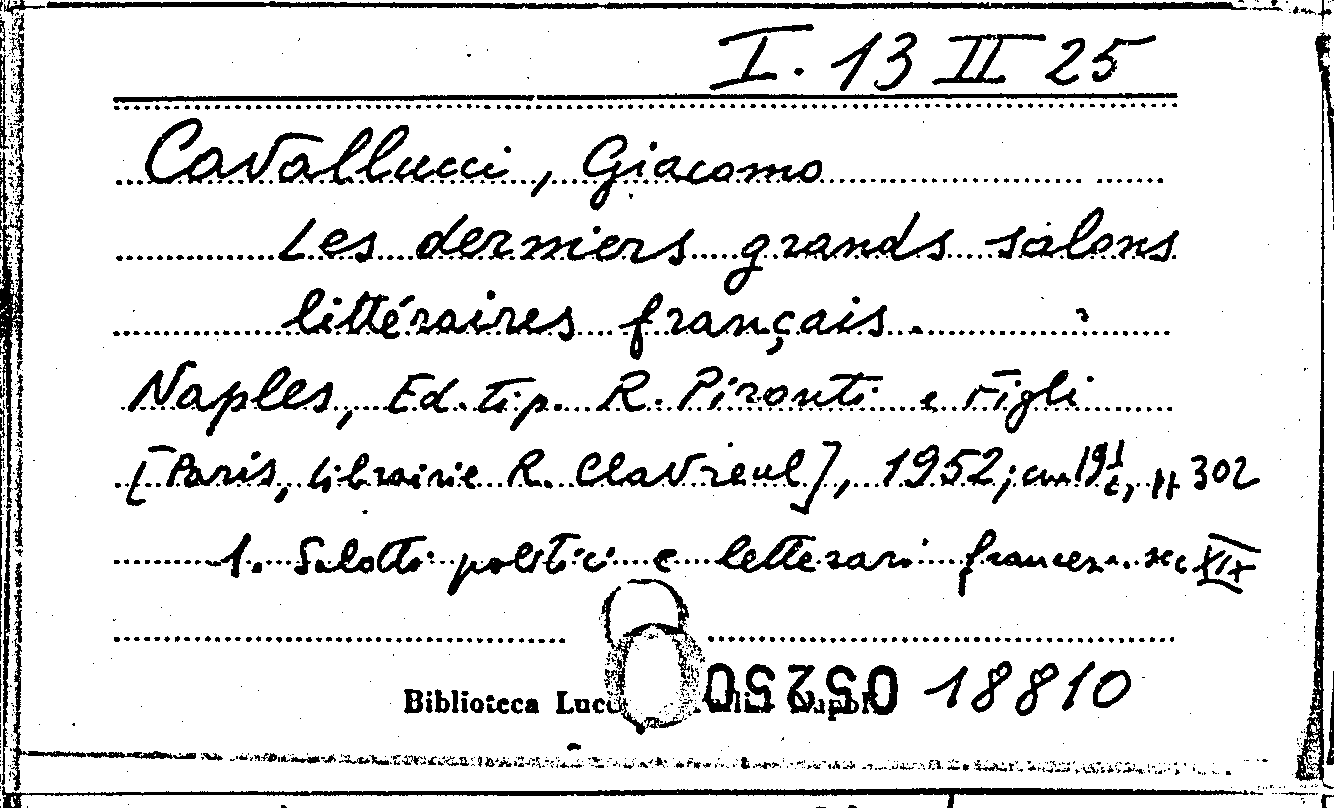 I. 13 II 25
Cavallucci, Giacomo
Les derniers grands salons
littéraires français.
Naples, Ed. tip. R. Pironti e Figli
[Paris, Librairie R. Clavreul], 1952; cm 19½, pp 302
1. Salotti politici e letterari francesi. sec XIX
Biblioteca 18810